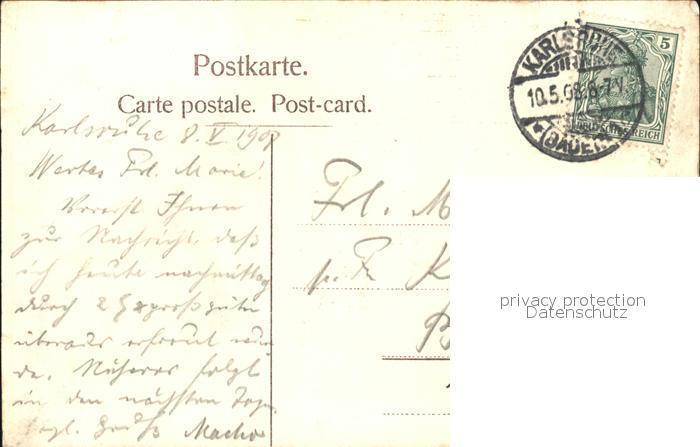 Postkarte.
Carte postale. Post-card.
KARLSRUHE
5
10.5.08. 6-7 V.
DEUTSCHES REICH
(BADEN)
Karlsruhe 8. V. 1908
Wertes Frl. Marie!
Vorerst Ihnen
zur Nachricht, daß
ich heute nachmittag
durch 2
überaus erfreut wur-
de. Näheres folgt
in den nächsten Tagen
Gruß
Frl. M
p. Fr K
B
privacy protection
Datenschutz